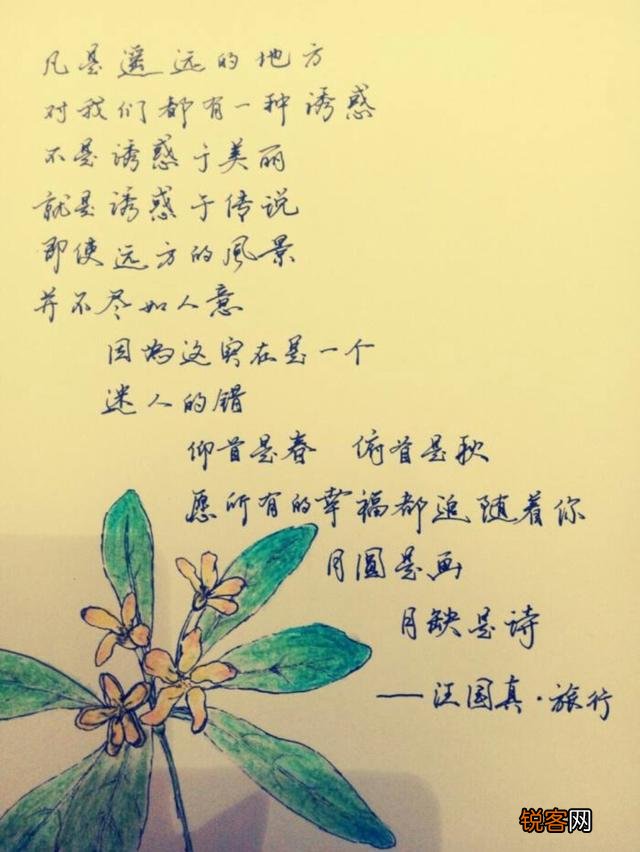 凡是遥远的地方
对我们都有一种诱惑
不是诱惑于美丽
就是诱惑于传说
即使远方的風景
并不尽如人意
因为这实在是一个
迷人的错
仰首是春 俯首是秋
愿所有的幸福都追随着你
月圆是画
月缺是诗
——汪国真·旅行
锐客网